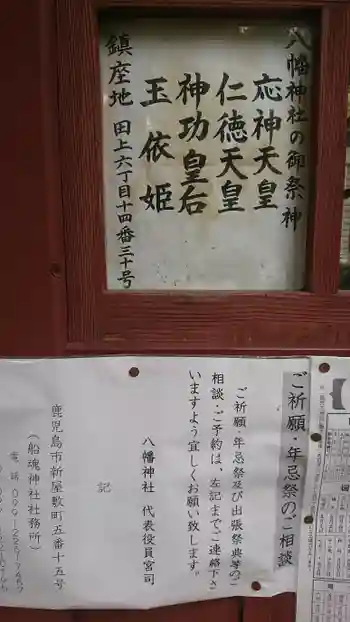 八幡神社の御祭神
応神天皇
仁徳天皇
神功皇后
玉依姫
鎮座地 田上六丁目十四番三十号
ご祈願・年忌祭のご相談
ご祈願・年忌祭及び出張祭典等のご
相談・ご予約は、左記までご連絡下さ
いますよう宜しくお願い致します。
八幡神社 代表役員宮司
記
鹿児島市新屋敷町五番十五号
(船魂神社社務所)
電話